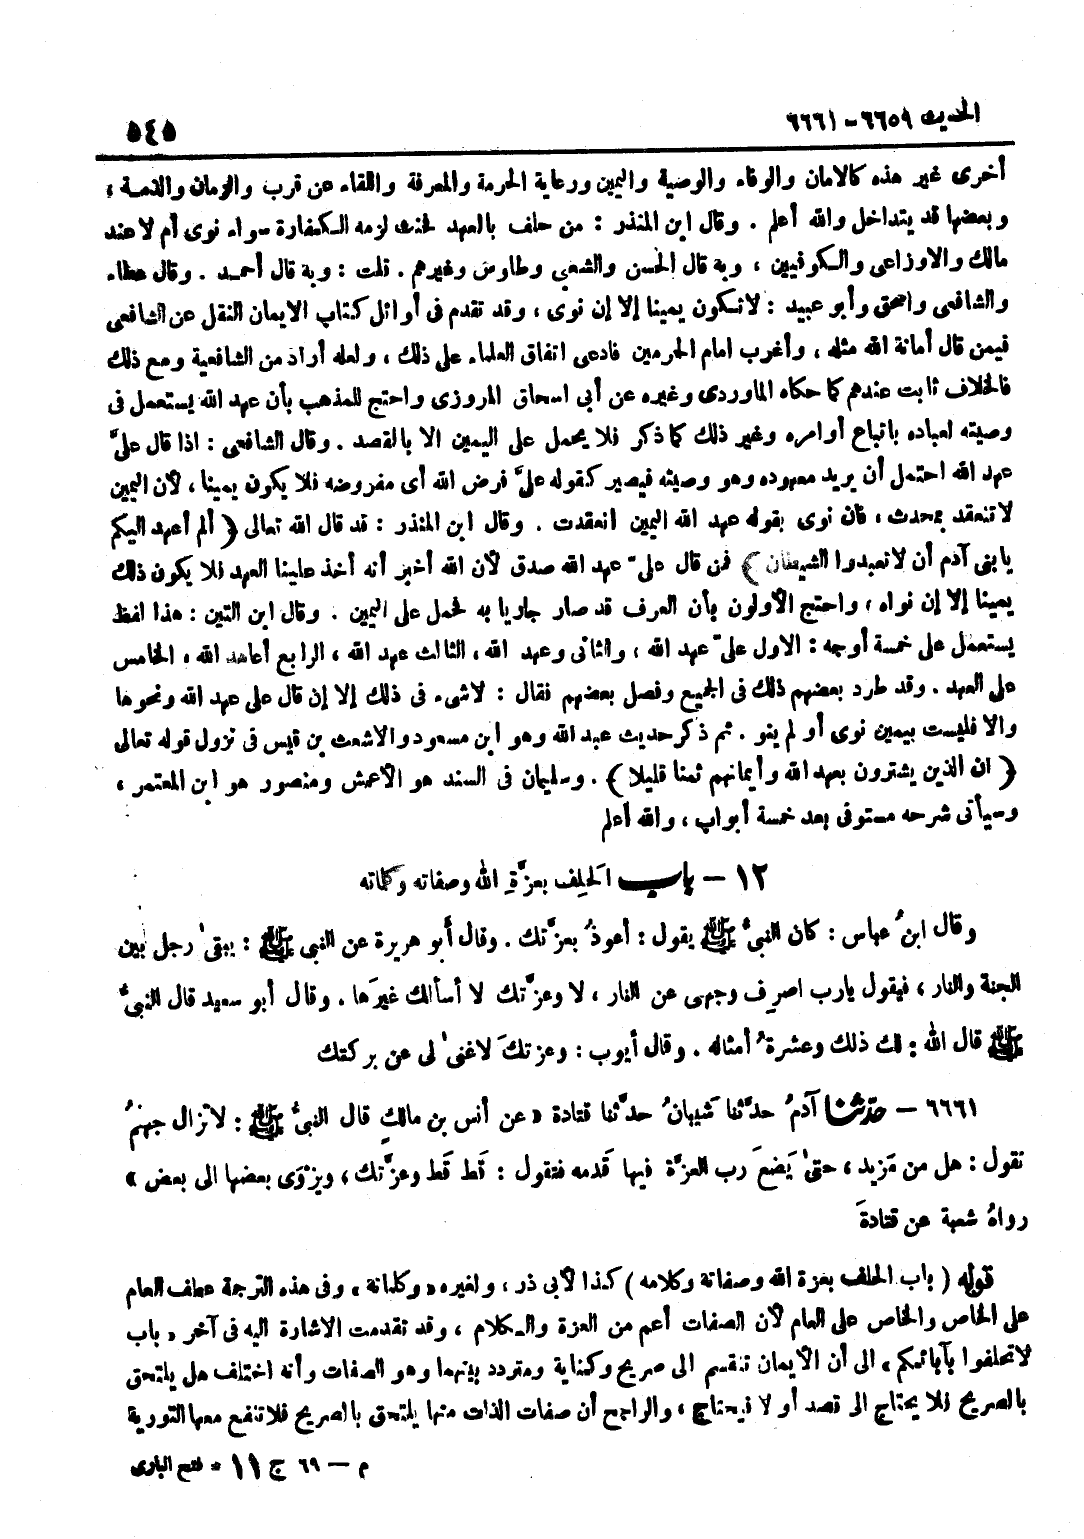 الحديث ٦٦٥٩ - ٦٦٦١
٥٤٥
أخرى غير هذه كالامان والوفاء والوصية واليمين ورعاية الحرمة والمعرفة واللقاء عن قرب والزمان والذمة ،
وبعضها قد يتداخل والله أعلم . وقال ابن المنذر : من حلف بالعهد فحنث لزمه الكفارة سواء نوى أم لا عند
مالك والاوزاعى والكوفيين ، وبه قال الحسن والشعبي وطاوس وغيرهم . قلت : وبه قال أحمد . وقال عطاء
والشافعى واسحق وأبو عبيد : لا تكون يمينا إلا إن نوى ، وقد تقدم فى أوائل كتاب الايمان النقل عن الشافعى
فيمن قال أمانة الله مثله ، وأغرب امام الحرمين فادعى اتفاق العلماء على ذلك ، ولعله أراد من الشافعية ومع ذلك
فالخلاف ثابت عندهم كما حكاه الماوردى وغيره عن أبى اسحاق المروزى واحتج للمذهب بأن عهد الله يستعمل فى
وصيته لعباده باتباع أوامره وغير ذلك كما ذكر فلا يحمل على اليمين الا بالقصد . وقال الشافعى : اذا قال علىَّ
عهد الله احتمل أن يريد معهوده وهو وصيته فيصير كقوله علىَّ فرض الله أى مفروضه فلا يكون يمينا ، لأن اليمين
لا تنعقد بمحدث ، فان نوى بقوله عهد الله اليمين انعقدت . وقال ابن المنذر : قد قال الله تعالى ﴿ ألم أعهد اليكم
يا بنى آدم أن لا تعبدوا الشيطان ﴾ فمن قال علىّ عهد الله صدق لأن الله أخبر أنه أخذ علينا العهد فلا يكون ذلك
يمينا إلا إن نواه ، واحتج الأولون بأن العرف قد صار جاريا به فحمل على اليمين . وقال ابن التين : هذا لفظ
يستعمل على خمسة أوجه : الاول علىّ عهد الله ، والثانى وعهد الله ، الثالث عهد الله ، الرابع أعاهد الله ، الخامس
على العهد . وقد طرد بعضهم ذلك فى الجميع وفصل بعضهم فقال : لا شىء فى ذلك إلا إن قال على عهد الله ونحوها
والا فليست بيمين نوى أو لم ينو . ثم ذكر حديث عبد الله وهو ابن مسعود والاشعث بن قيس فى نزول قوله تعالى
﴿ ان الذين يشترون بعهد الله وأيمانهم ثمنا قليلا ﴾ . وسليمان فى السند هو الأعمش ومنصور هو ابن المعتمر ،
وسيأتى شرحه مستوفى بعد خمسة أبواب ، والله أعلم
١٢ - باب الحَلِف بعزَّةِ الله وصفاته وكلماته
وقال ابنُ عباس : كان النبىُّ ﷺ يقول : أعوذُ بعزَّتك . وقال أبو هريرة عن النبى ﷺ : يبقىٰ رجل بين
الجنة والنار ، فيقول يارب اصرِف وجهى عن النار ، لا وعزَّتك لا أسألك غيرَها . وقال أبو سعيد قال النبىُّ
ﷺ قال الله : لك ذلك وعشرةُ أمثاله . وقال أيوب : وعزتكَ لا غنىٰ لى عن بركتك
٦٦٦١ - حدثنا آدمُ حدَّثنا شَيبانُ حدَّثنا قتادة « عن أنس بن مالكٍ قال النبىُّ ﷺ : لا تزال جهنمُ
تقول : هل من مَزيد ، حتىٰ يَضعَ رب العزَّة فيها قَدمه فتقول : قَط قَط وعزَّتك ، ويزْوَى بعضها الى بعض »
رواهُ شعبة عن قتادةَ
قوله ( باب الحلف بعزة الله وصفاته وكلامه ) كذا لأبى ذر ، ولغيره « وكلماته ، وفى هذه الترجمة عطف العام
على الخاص والخاص على العام لأن الصفات أعم من العزة والكلام ، وقد تقدمت الاشارة اليه فى آخر « باب
لا تحلفوا بآبائكم ، الى أن الأيمان تنقسم الى صريح وكناية ومتردد بينهما وهو الصفات وأنه اختلف هل يلتحق
بالصريح فلا يحتاج الى قصد أو لا فيحتاج ، والراجح أن صفات الذات منها يلتحق بالصريح فلا تنفع معها التورية
م - ٦٩ ج ١١ * فتح البارى